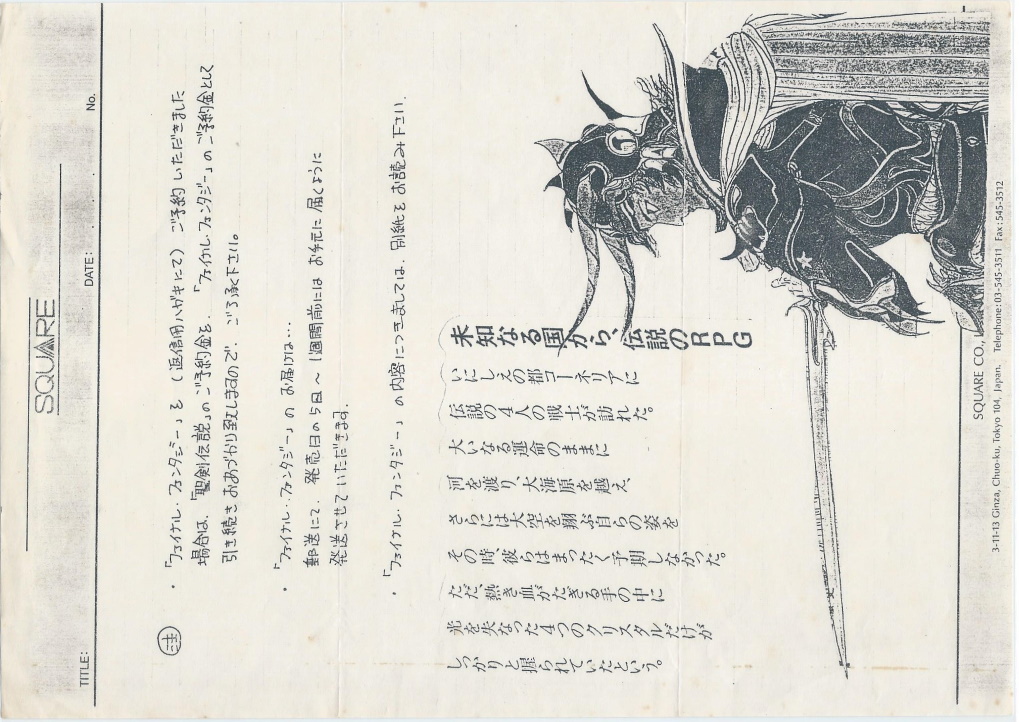 SQUARE
TITLE:
DATE:
No.
注
・「ファイナル・ファンタジー」を（返信用ハガキにて）ご予約いただきました
場合は、「聖剣伝説」のご予約金を、「ファイナル・ファンタジー」のご予約金として
引き続きおあづかり致しますので、ご了承下さい。
・「ファイナル・ファンタジー」のお届けは…
郵送にて、発売日の5日〜1週間前にはお手元に届くように
発送させていただきます。
・「ファイナル・ファンタジー」の内容につきましては、別紙をお読み下さい。
未知なる国から、伝説のRPG
いにしえの都コーネリアに
伝説の4人の戦士が訪れた。
大いなる運命のままに
河を渡り、大海原を越え、
さらには大空を翔ぶ自らの姿を
その時、彼らはまったく予期しなかった。
ただ、熱き血がたぎる手の中に
光を失なった4つのクリスタルだけが
しっかりと握られていたという。
SQUARE CO.,
3-11-13 Ginza, Chuo-ku, Tokyo 104, Japan. Telephone:03-545-3511 Fax:545-3512